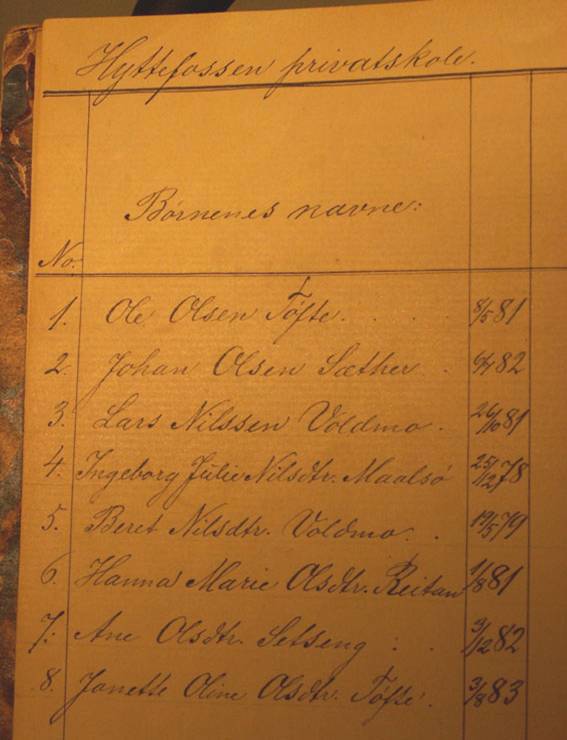 Hyttefossen privatskole.
Børnenes navne:
No.
1. Ole Olsen Tøfte. 8/5 81
2. Johan Olsen Sæther. 82
3. Lars Nilssen Voldmo. 26/10 81
4. Ingeborg Julie Nilsdtr. Maalsø 25/12 78
5. Beret Nilsdtr. Voldmo. 19/5 79
6. Hanna Marie Olsdtr. Reitan 1/8 81
7. Ane Olsdtr. Setseng 3/12 82
8. Janette Oline Olsdtr. Tøfte. 3/8 83